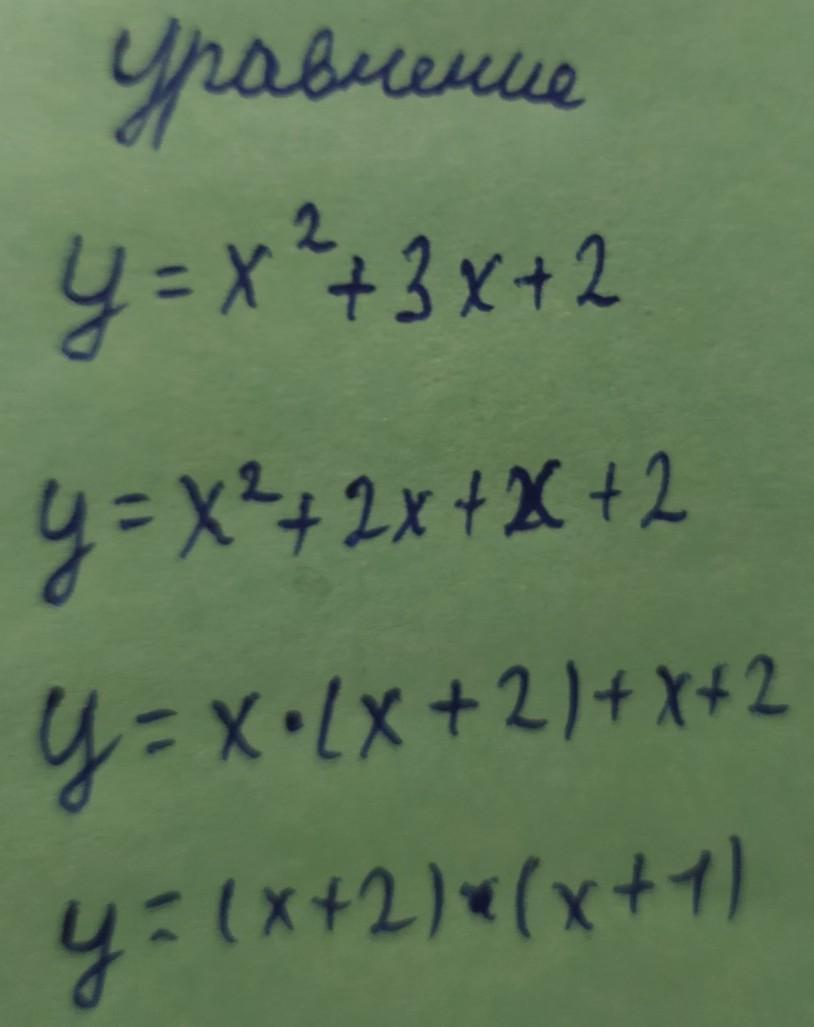 Уравнение
y = x² + 3x + 2
y = x² + 2x + x + 2
y = x · (x + 2) + x + 2
y = (x + 2) · (x + 1)